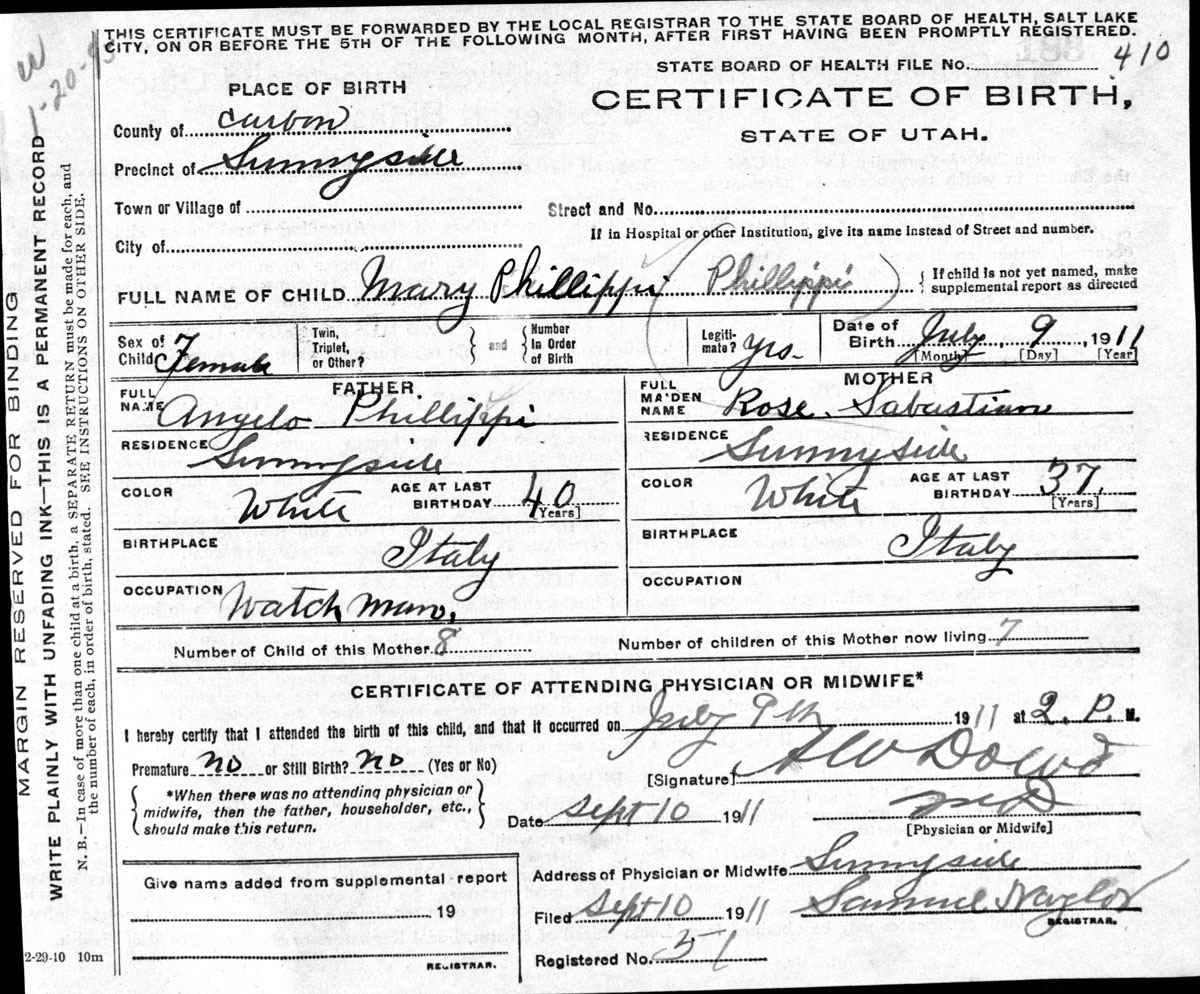 THIS CERTIFICATE MUST BE FORWARDED BY THE LOCAL REGISTRAR TO THE STATE BOARD OF HEALTH, SALT LAKE
CITY, ON OR BEFORE THE 5TH OF THE FOLLOWING MONTH, AFTER FIRST HAVING BEEN PROMPTLY REGISTERED.
STATE BOARD OF HEALTH FILE No. 410
PLACE OF BIRTH
CERTIFICATE OF BIRTH,
STATE OF UTAH.
County of Carbon
Precinct of Sunnyside
Town or Village of
Street and No.
If in Hospital or other Institution, give its name instead of Street and number.
City of
FULL NAME OF CHILD Mary Phillippi (Phillippi) { If child is not yet named, make supplemental report as directed
Sex of Child Female Twin, Triplet, or Other? } and { Number in Order of Birth Legiti-mate? yes. Date of Birth July 9, 1911
[Month] [Day] [Year]
FATHER
MOTHER
FULL NAME Angelo Phillippi
FULL MAIDEN NAME Rose Sabastian
RESIDENCE Sunnyside
RESIDENCE Sunnyside
COLOR White AGE AT LAST BIRTHDAY 40 [Years]
COLOR White AGE AT LAST BIRTHDAY 37. [Years]
BIRTHPLACE Italy
BIRTHPLACE Italy
OCCUPATION Watch Man.
OCCUPATION
Number of Child of this Mother. 8
Number of children of this Mother now living. 7
CERTIFICATE OF ATTENDING PHYSICIAN OR MIDWIFE*
I hereby certify that I attended the birth of this child, and that it occurred on July 9th 1911 at 2. P. M.
Premature no or Still Birth? no (Yes or No)
[Signature] Dowd
MD
*When there was no attending physician or
midwife, then the father, householder, etc.,
should make this return.
Date Sept 10 1911
[Physician or Midwife]
Give name added from supplemental report
19
REGISTRAR.
Address of Physician or Midwife Sunnyside
Filed Sept 10 1911 Samuel Naylor
REGISTRAR.
Registered No. 51
2-29-10 10m
MARGIN RESERVED FOR BINDING
WRITE PLAINLY WITH UNFADING INK—THIS IS A PERMANENT RECORD
N. B.—In case of more than one child at a birth, a SEPARATE RETURN must be made for each, and
the number of each, in order of birth, stated. SEE INSTRUCTIONS ON OTHER SIDE.